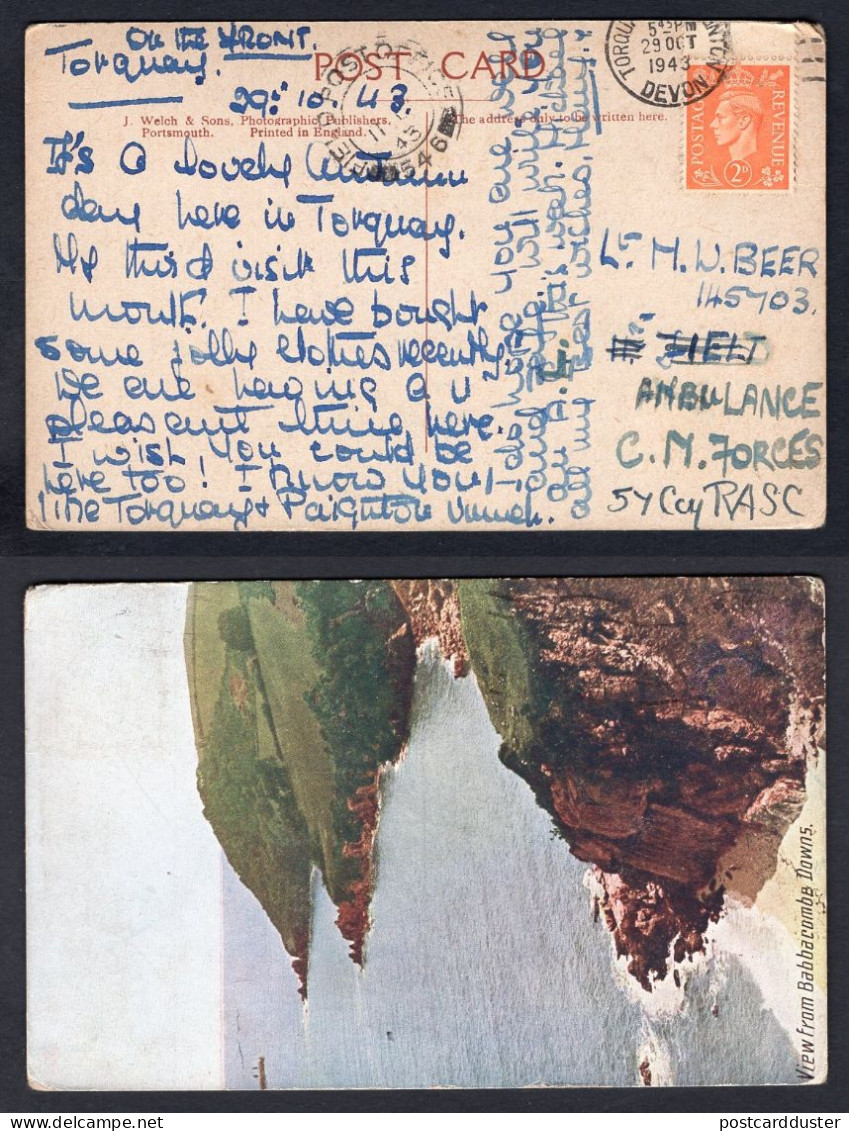 On the FRONT.
Torquay.
29. 10. 43.
POST CARD
J. Welch & Sons, Photographic Publishers,
Portsmouth. Printed in England.
The address only to be written here.
FIELD POST OFFICE
546
43
TORQUAY
5 45 PM
29 OCT
1943
DEVON
POSTAGE
REVENUE
2D
It's a lovely Autumn
day here in Torquay.
My third visit this
month. I have bought
some jolly clothes recently.
We are having a
pleasant time here.
I wish you could be
here too! I know you
like Torquay & Paignton
I do hope you are well
and will write
an A.L.
all my best wishes,
Lt. M. W. BEER
145703.
FIELD
AMBULANCE
C. M. FORCES
57 Coy RASC
View from Babbacombe Downs.
postcardduster